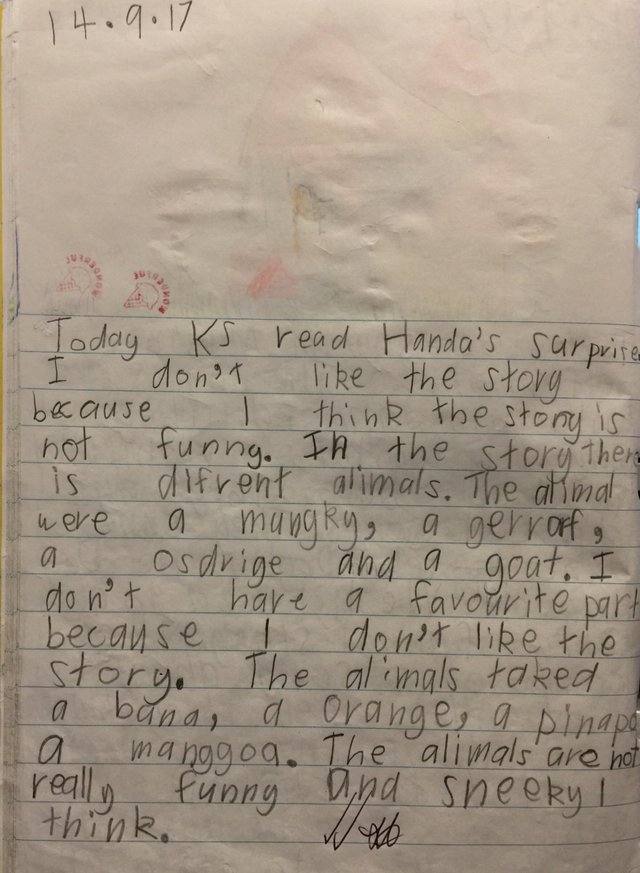 14.9.17
WONDERFUL WONDERFUL
Today KS read Handa's surprise
I don't like the story
because I think the story is
not funny. In the story ther
is difrent alimals. The alimal
were a mungky, a gerrarf,
a osdrige and a goat. I
don't have a favourite part
because I don't like the
story. The alimals taked
a bana, a orange, a pinapo
a manggoa. The alimals are not
really funny and sneeky I
think.